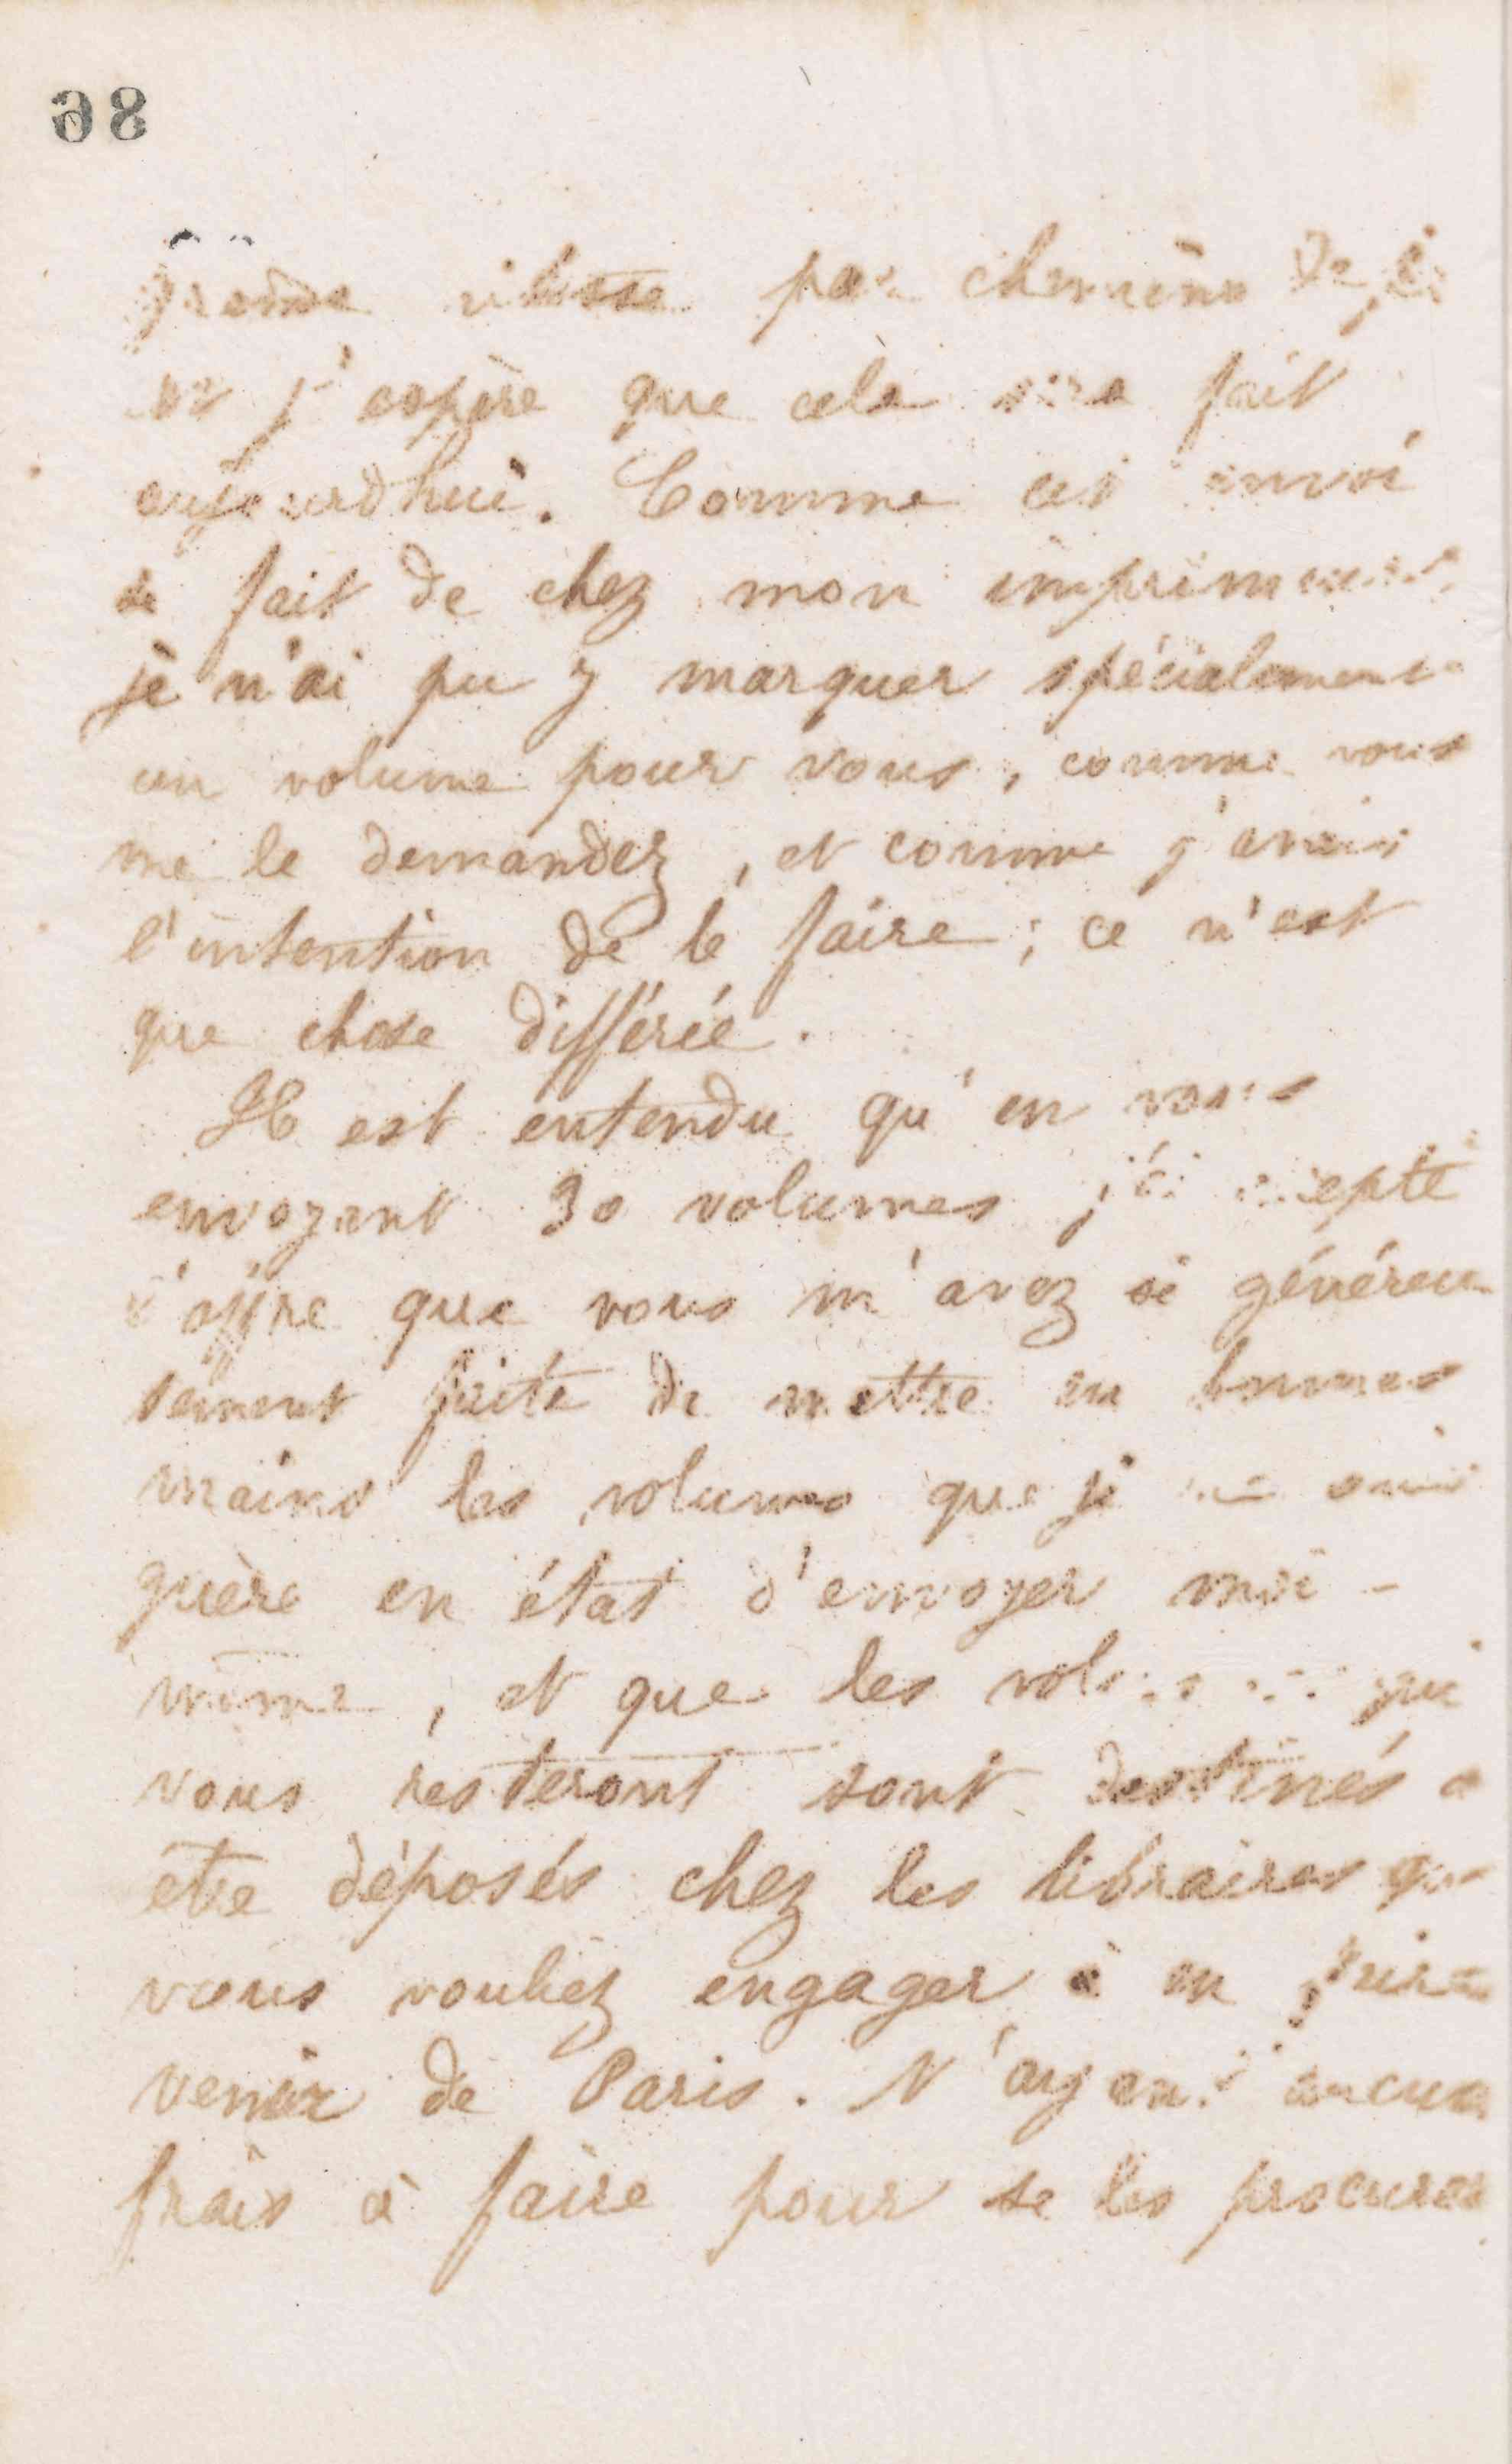 68
grande vitesse par chemins de fer
et j'espère que cela sera fait
aujourdhui. Comme cet envoi
se fait de chez mon imprimeur,
je n'ai pu y marquer spécialement
un volume pour vous, comme vous
me le demandez, et comme j'avais
l'intention de le faire; ce n'est
que chose différée.
Il est entendu qu'en vous
envoyant 30 volumes j'ai accepté
l'offre que vous m'avez si généreu-
sement faite de mettre en bonnes
mains les volumes que je ne suis
guère en état d'envoyer moi-
même, et que les volumes qui
vous resteront sont destinés a
etre déposés chez les libraires que
vous vouliez engager à en faire
venir de Paris. N'ayant aucun
frais à faire pour se les procurer